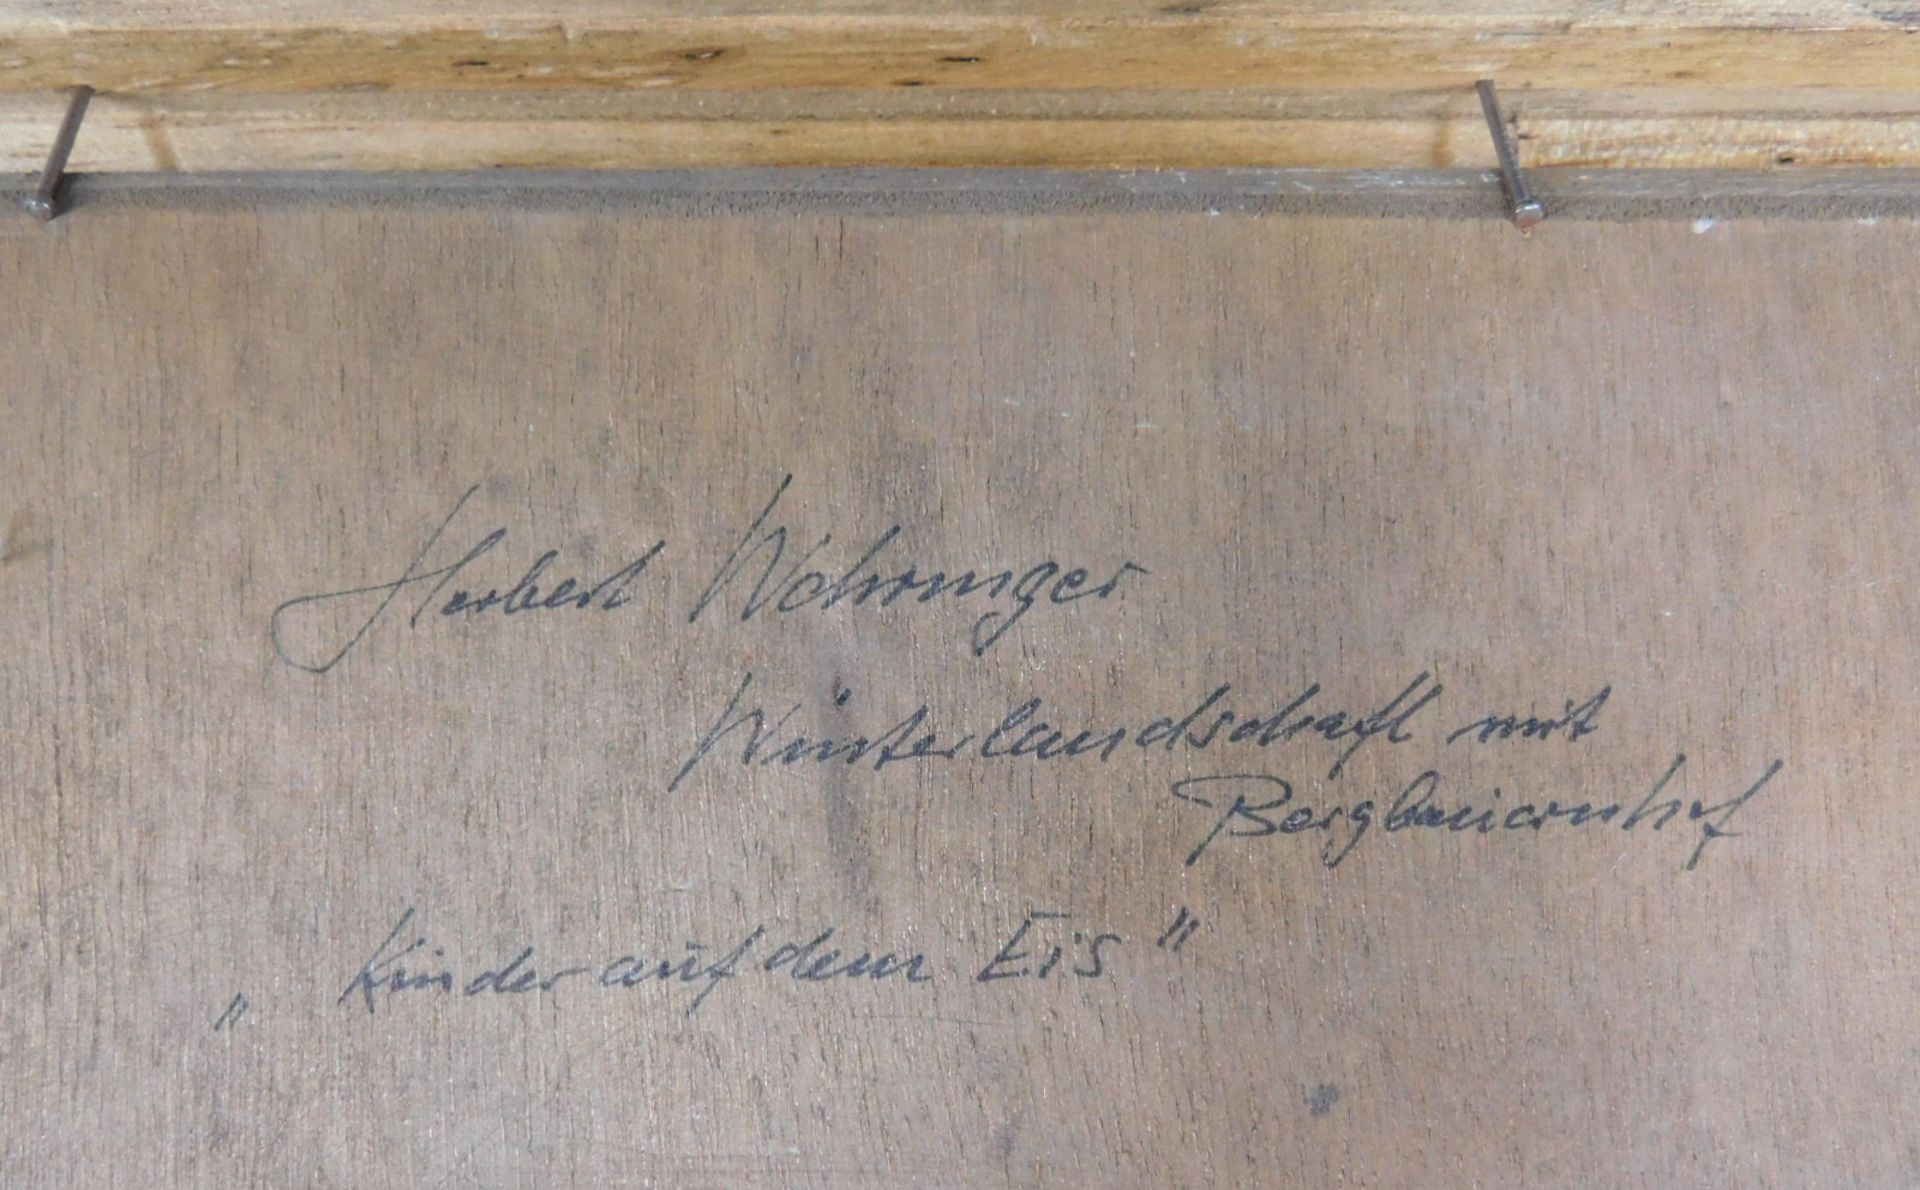 Herbert Wohringer
Winterlandschaft mit
Bergbauernhof
„Kinder auf dem Eis"